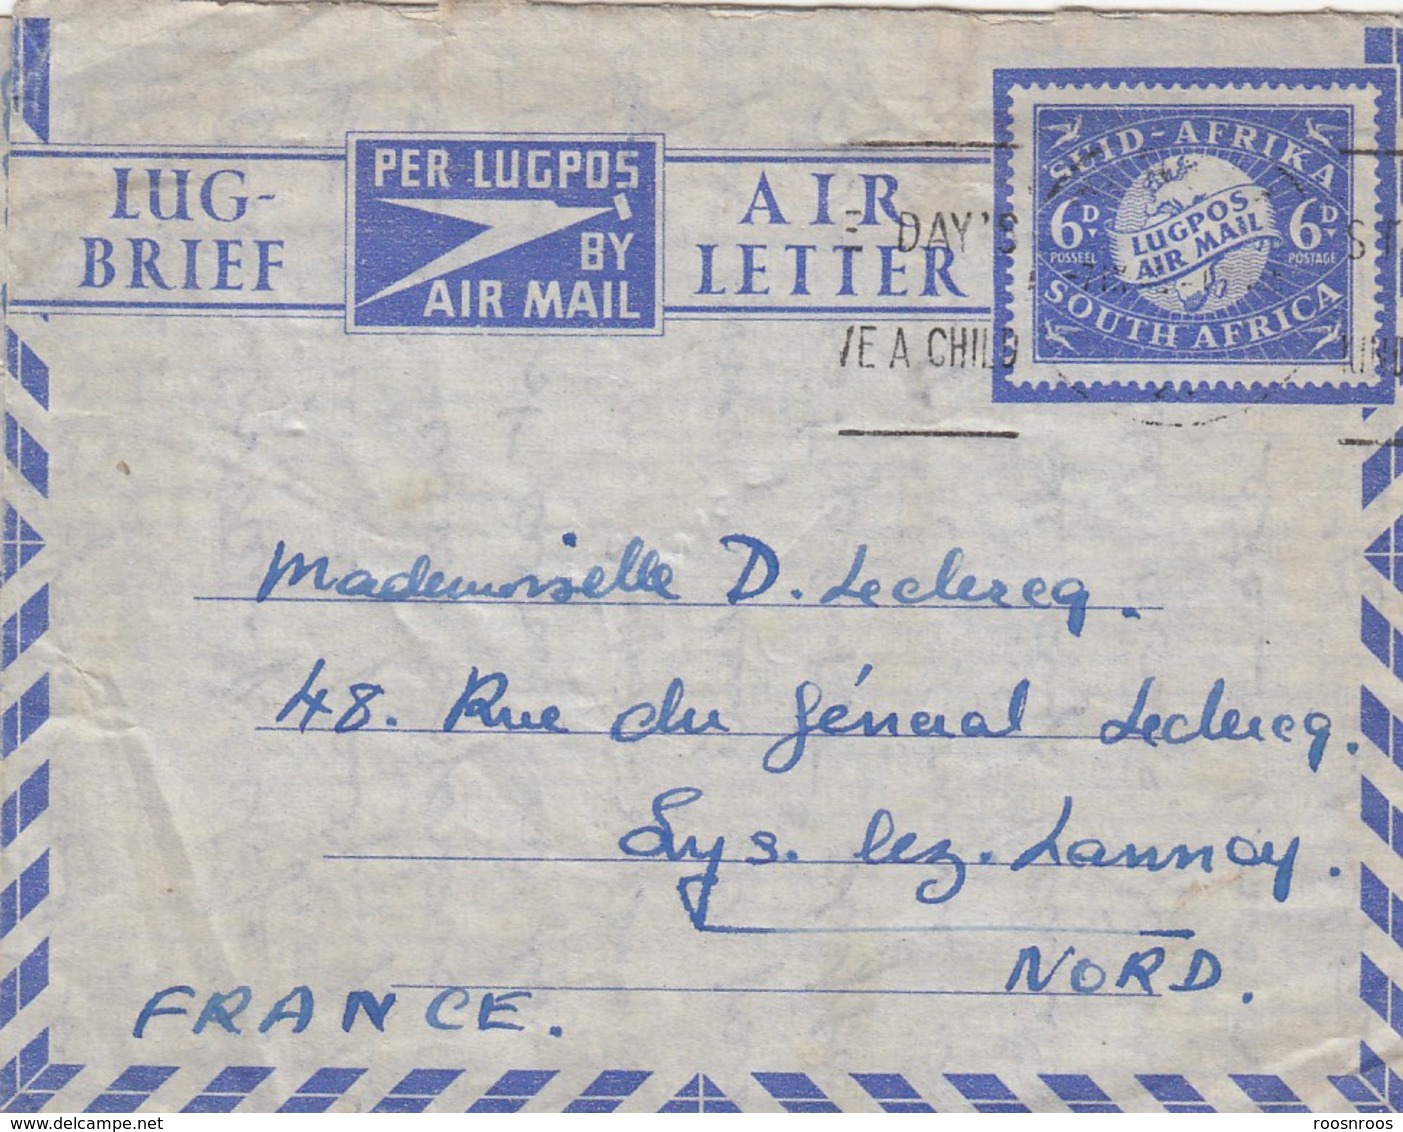 LUG-
BRIEF
PER LUGPOS
BY
AIR MAIL
AIR
LETTER
SUID-AFRIKA
6D
POSSEEL
LUGPOS
AIR MAIL
6D
POSTAGE
SOUTH AFRICA
DAY'S
VE A CHILD
Mademoiselle D. Leclercq.
48. Rue du Général Leclercq.
Lys. lez. Lannoy.
NORD.
FRANCE.
roosnroos